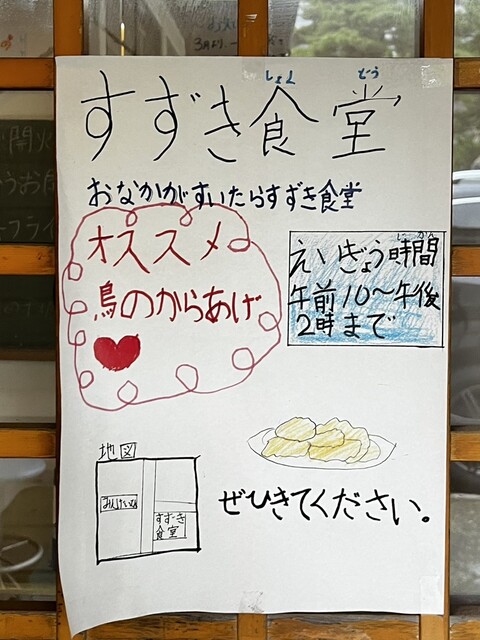 すずき食堂
しょく どう
おなかがすいたらすずき食堂
オススメ
鳥のからあげ
えいぎょう時間
じかん
午前10〜午後
2時まで
地図
すずき
食堂
ぜひきてください。